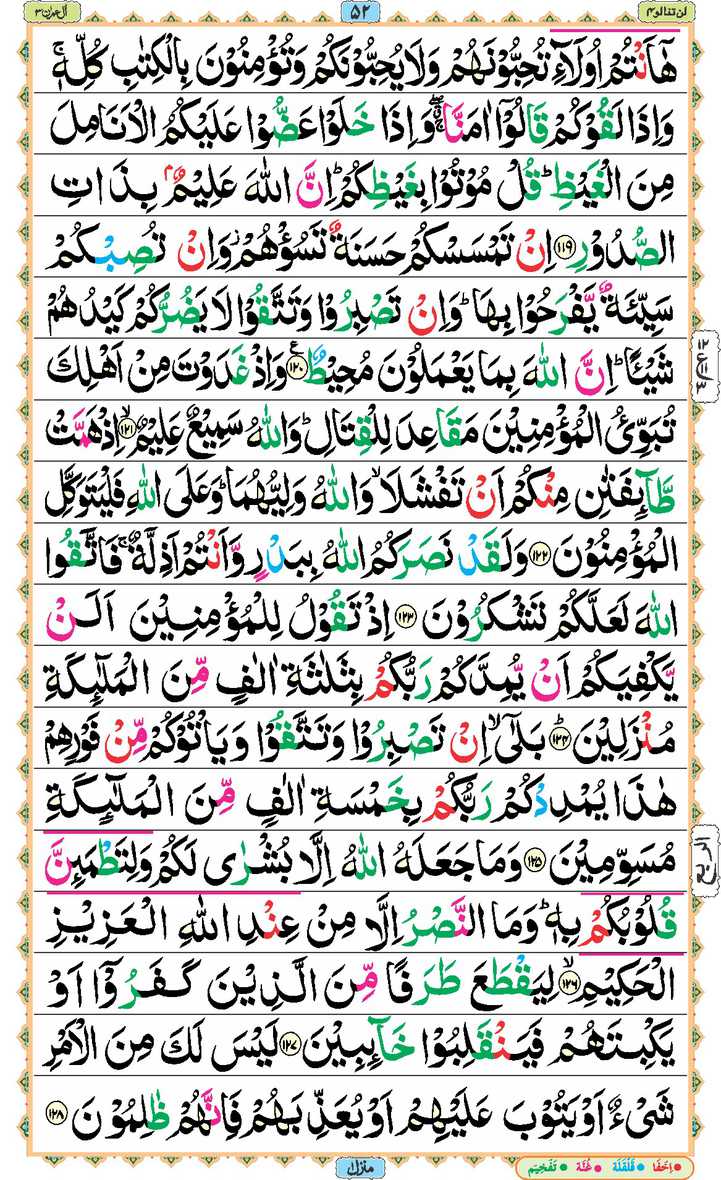 لن تنالوا ٤ ٥٢ اٰل عمرٰن ٣
هٰۤاَنْتُمْ اُولَآءِ تُحِبُّوْنَهُمْ وَلَا يُحِبُّوْنَكُمْ وَتُؤْمِنُوْنَ بِالْكِتٰبِ كُلِّهٖ ۚ
وَاِذَا لَقُوْكُمْ قَالُوْۤا اٰمَنَّا ۖۗ وَاِذَا خَلَوْا عَضُّوْا عَلَيْكُمُ الْاَنَامِلَ
مِنَ الْغَيْظِ ؕ قُلْ مُوْتُوْا بِغَيْظِكُمْ ؕ اِنَّ اللّٰهَ عَلِيْمٌۢ بِذَاتِ
الصُّدُوْرِ ﴿۱۱۹﴾ اِنْ تَمْسَسْكُمْ حَسَنَةٌ تَسُؤْهُمْ ؗ وَاِنْ تُصِبْكُمْ
سَيِّئَةٌ يَّفْرَحُوْا بِهَا ؕ وَاِنْ تَصْبِرُوْا وَتَتَّقُوْا لَا يَضُرُّكُمْ كَيْدُهُمْ
شَيْـًٔا ؕ اِنَّ اللّٰهَ بِمَا يَعْمَلُوْنَ مُحِيْطٌ ﴿۱۲۰﴾ ع وَاِذْ غَدَوْتَ مِنْ اَهْلِكَ
تُبَوِّئُ الْمُؤْمِنِيْنَ مَقَاعِدَ لِلْقِتَالِ ؕ وَاللّٰهُ سَمِيْعٌ عَلِيْمٌ ﴿۱۲۱﴾ ۙ اِذْ هَمَّتْ
طَّآئِفَتٰنِ مِنْكُمْ اَنْ تَفْشَلَا ۙ وَاللّٰهُ وَلِيُّهُمَا ؕ وَعَلَى اللّٰهِ فَلْيَتَوَكَّلِ
الْمُؤْمِنُوْنَ ﴿۱۲۲﴾ وَلَقَدْ نَصَرَكُمُ اللّٰهُ بِبَدْرٍ وَّاَنْتُمْ اَذِلَّةٌ ۚ فَاتَّقُوا
اللّٰهَ لَعَلَّكُمْ تَشْكُرُوْنَ ﴿۱۲۳﴾ اِذْ تَقُوْلُ لِلْمُؤْمِنِيْنَ اَلَنْ
يَّكْفِيَكُمْ اَنْ يُّمِدَّكُمْ رَبُّكُمْ بِثَلٰثَةِ اٰلٰفٍ مِّنَ الْمَلٰٓئِكَةِ
مُنْزَلِيْنَ ﴿۱۲۴﴾ ؕ بَلٰٓى ۙ اِنْ تَصْبِرُوْا وَتَتَّقُوْا وَيَاْتُوْكُمْ مِّنْ فَوْرِهِمْ
هٰذَا يُمْدِدْكُمْ رَبُّكُمْ بِخَمْسَةِ اٰلٰفٍ مِّنَ الْمَلٰٓئِكَةِ
مُسَوِّمِيْنَ ﴿۱۲۵﴾ وَمَا جَعَلَهُ اللّٰهُ اِلَّا بُشْرٰى لَكُمْ وَلِتَطْمَئِنَّ
قُلُوْبُكُمْ بِهٖ ؕ وَمَا النَّصْرُ اِلَّا مِنْ عِنْدِ اللّٰهِ الْعَزِيْزِ
الْحَكِيْمِ ﴿۱۲۶﴾ ۙ لِيَقْطَعَ طَرَفًا مِّنَ الَّذِيْنَ كَفَرُوْۤا اَوْ
يَكْبِتَهُمْ فَيَنْقَلِبُوْا خَآئِبِيْنَ ﴿۱۲۷﴾ لَيْسَ لَكَ مِنَ الْاَمْرِ
شَيْءٌ اَوْ يَتُوْبَ عَلَيْهِمْ اَوْ يُعَذِّبَهُمْ فَاِنَّهُمْ ظٰلِمُوْنَ ﴿۱۲۸﴾
ع
الربع
منزل ۱
اِخفَا قَلْقَلَة غُنَّة تَفْخِيْم